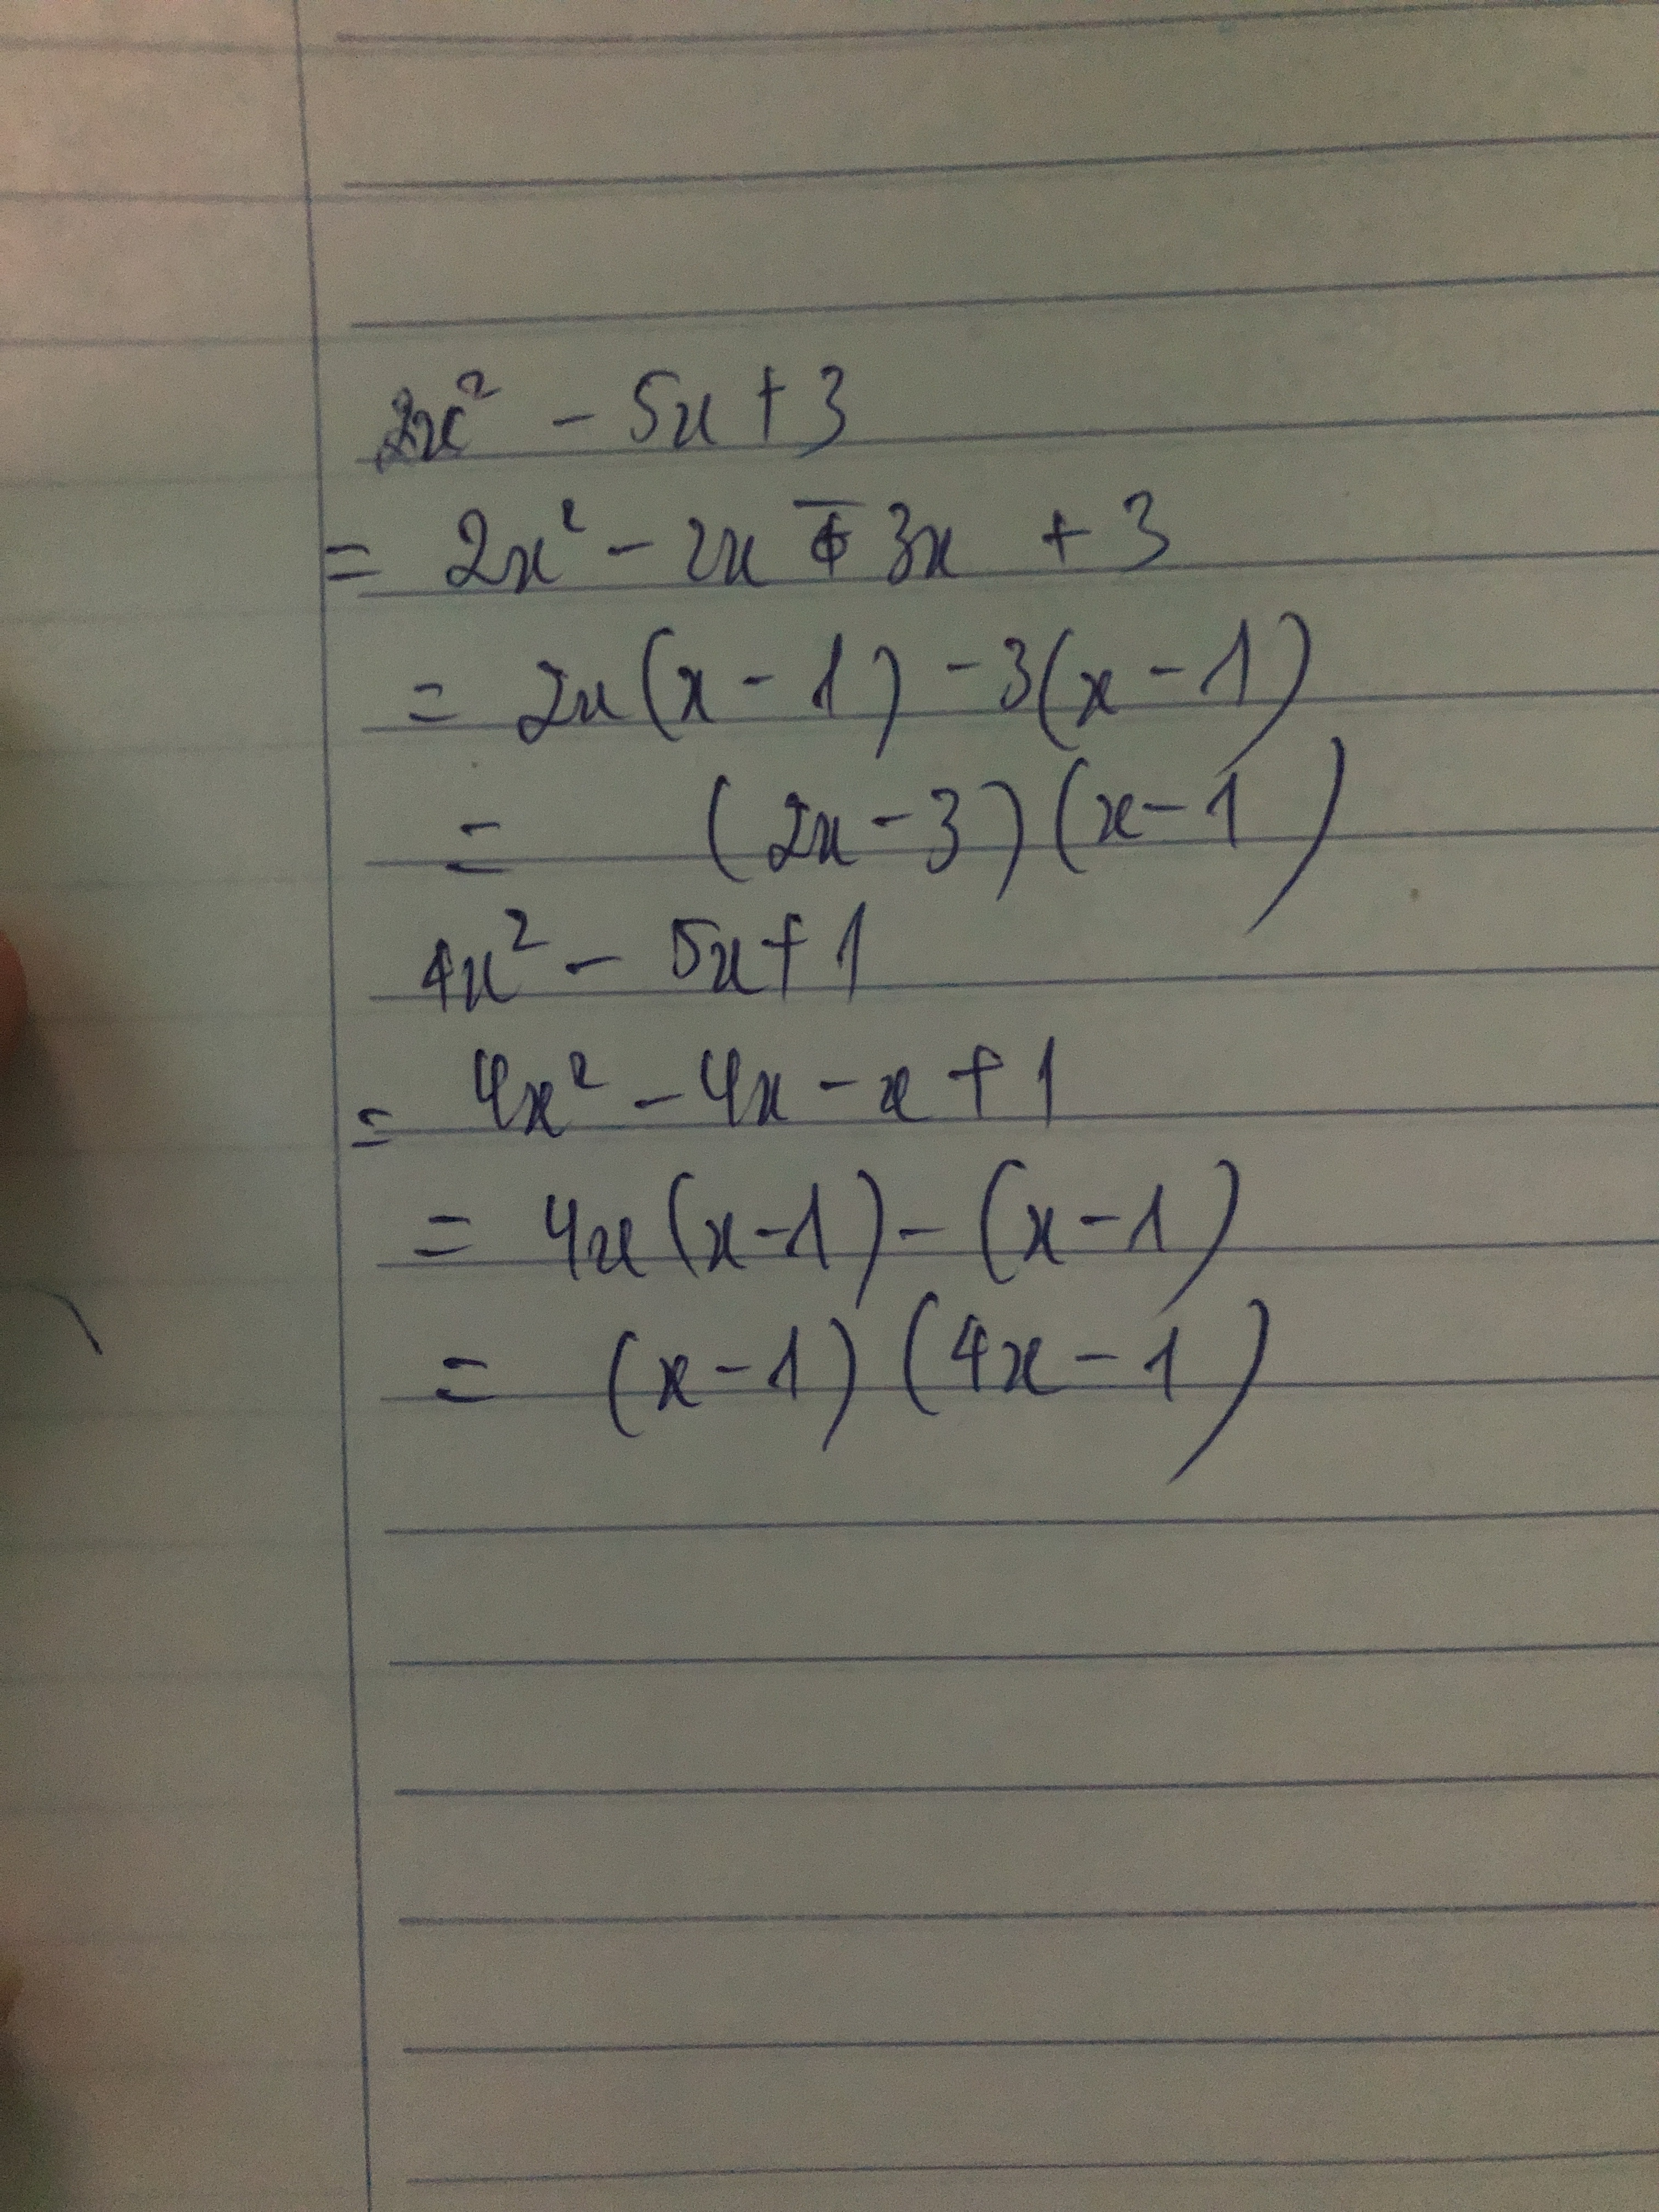 2x² - 5x + 3
= 2x² - 2x - 3x + 3
= 2x(x - 1) - 3(x - 1)
= (2x - 3)(x - 1)
4x² - 5x + 1
= 4x² - 4x - x + 1
= 4x(x - 1) - (x - 1)
= (x - 1)(4x - 1)